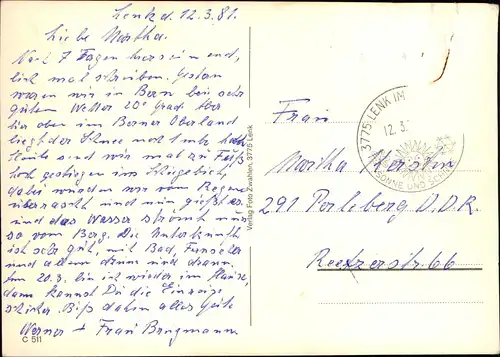 Lenk d. 12.3.81.
Liebe Martha.
Nach 7 Tagen hiersein end,
lich mal schreiben. Gestern
waren wir in Bern bei sehr
gutem Wetter 20° Grad. Aber
hier oben im Berner Oberland
liegt der Schnee noch 1 mtr. hoch
Heute sind wir mal zu Fuß
hoch gestiegen ins Skigebiet,
dabei wurden wir vom Regen
überrascht und nun gießt es
und das Wasser strömt nur
so vom Berg. Die Unterkunft
ist sehr gut, mit Bad, Fernseher
und allem drum und dran.
Am 20.3. bin ich wieder im Hause,
dann kannst Du die Einreise
schicken. Biß dahin alles Gute
Werner + Frau Brugmann
C 511
Verlag Foto Zwahlen, 3775 Lenk
3775 LENK IM
12.3.
SONNE UND SCHNEE
Frau
Martha Kerstin
291 Perleberg D.D.R.
Reetzerstr. 66